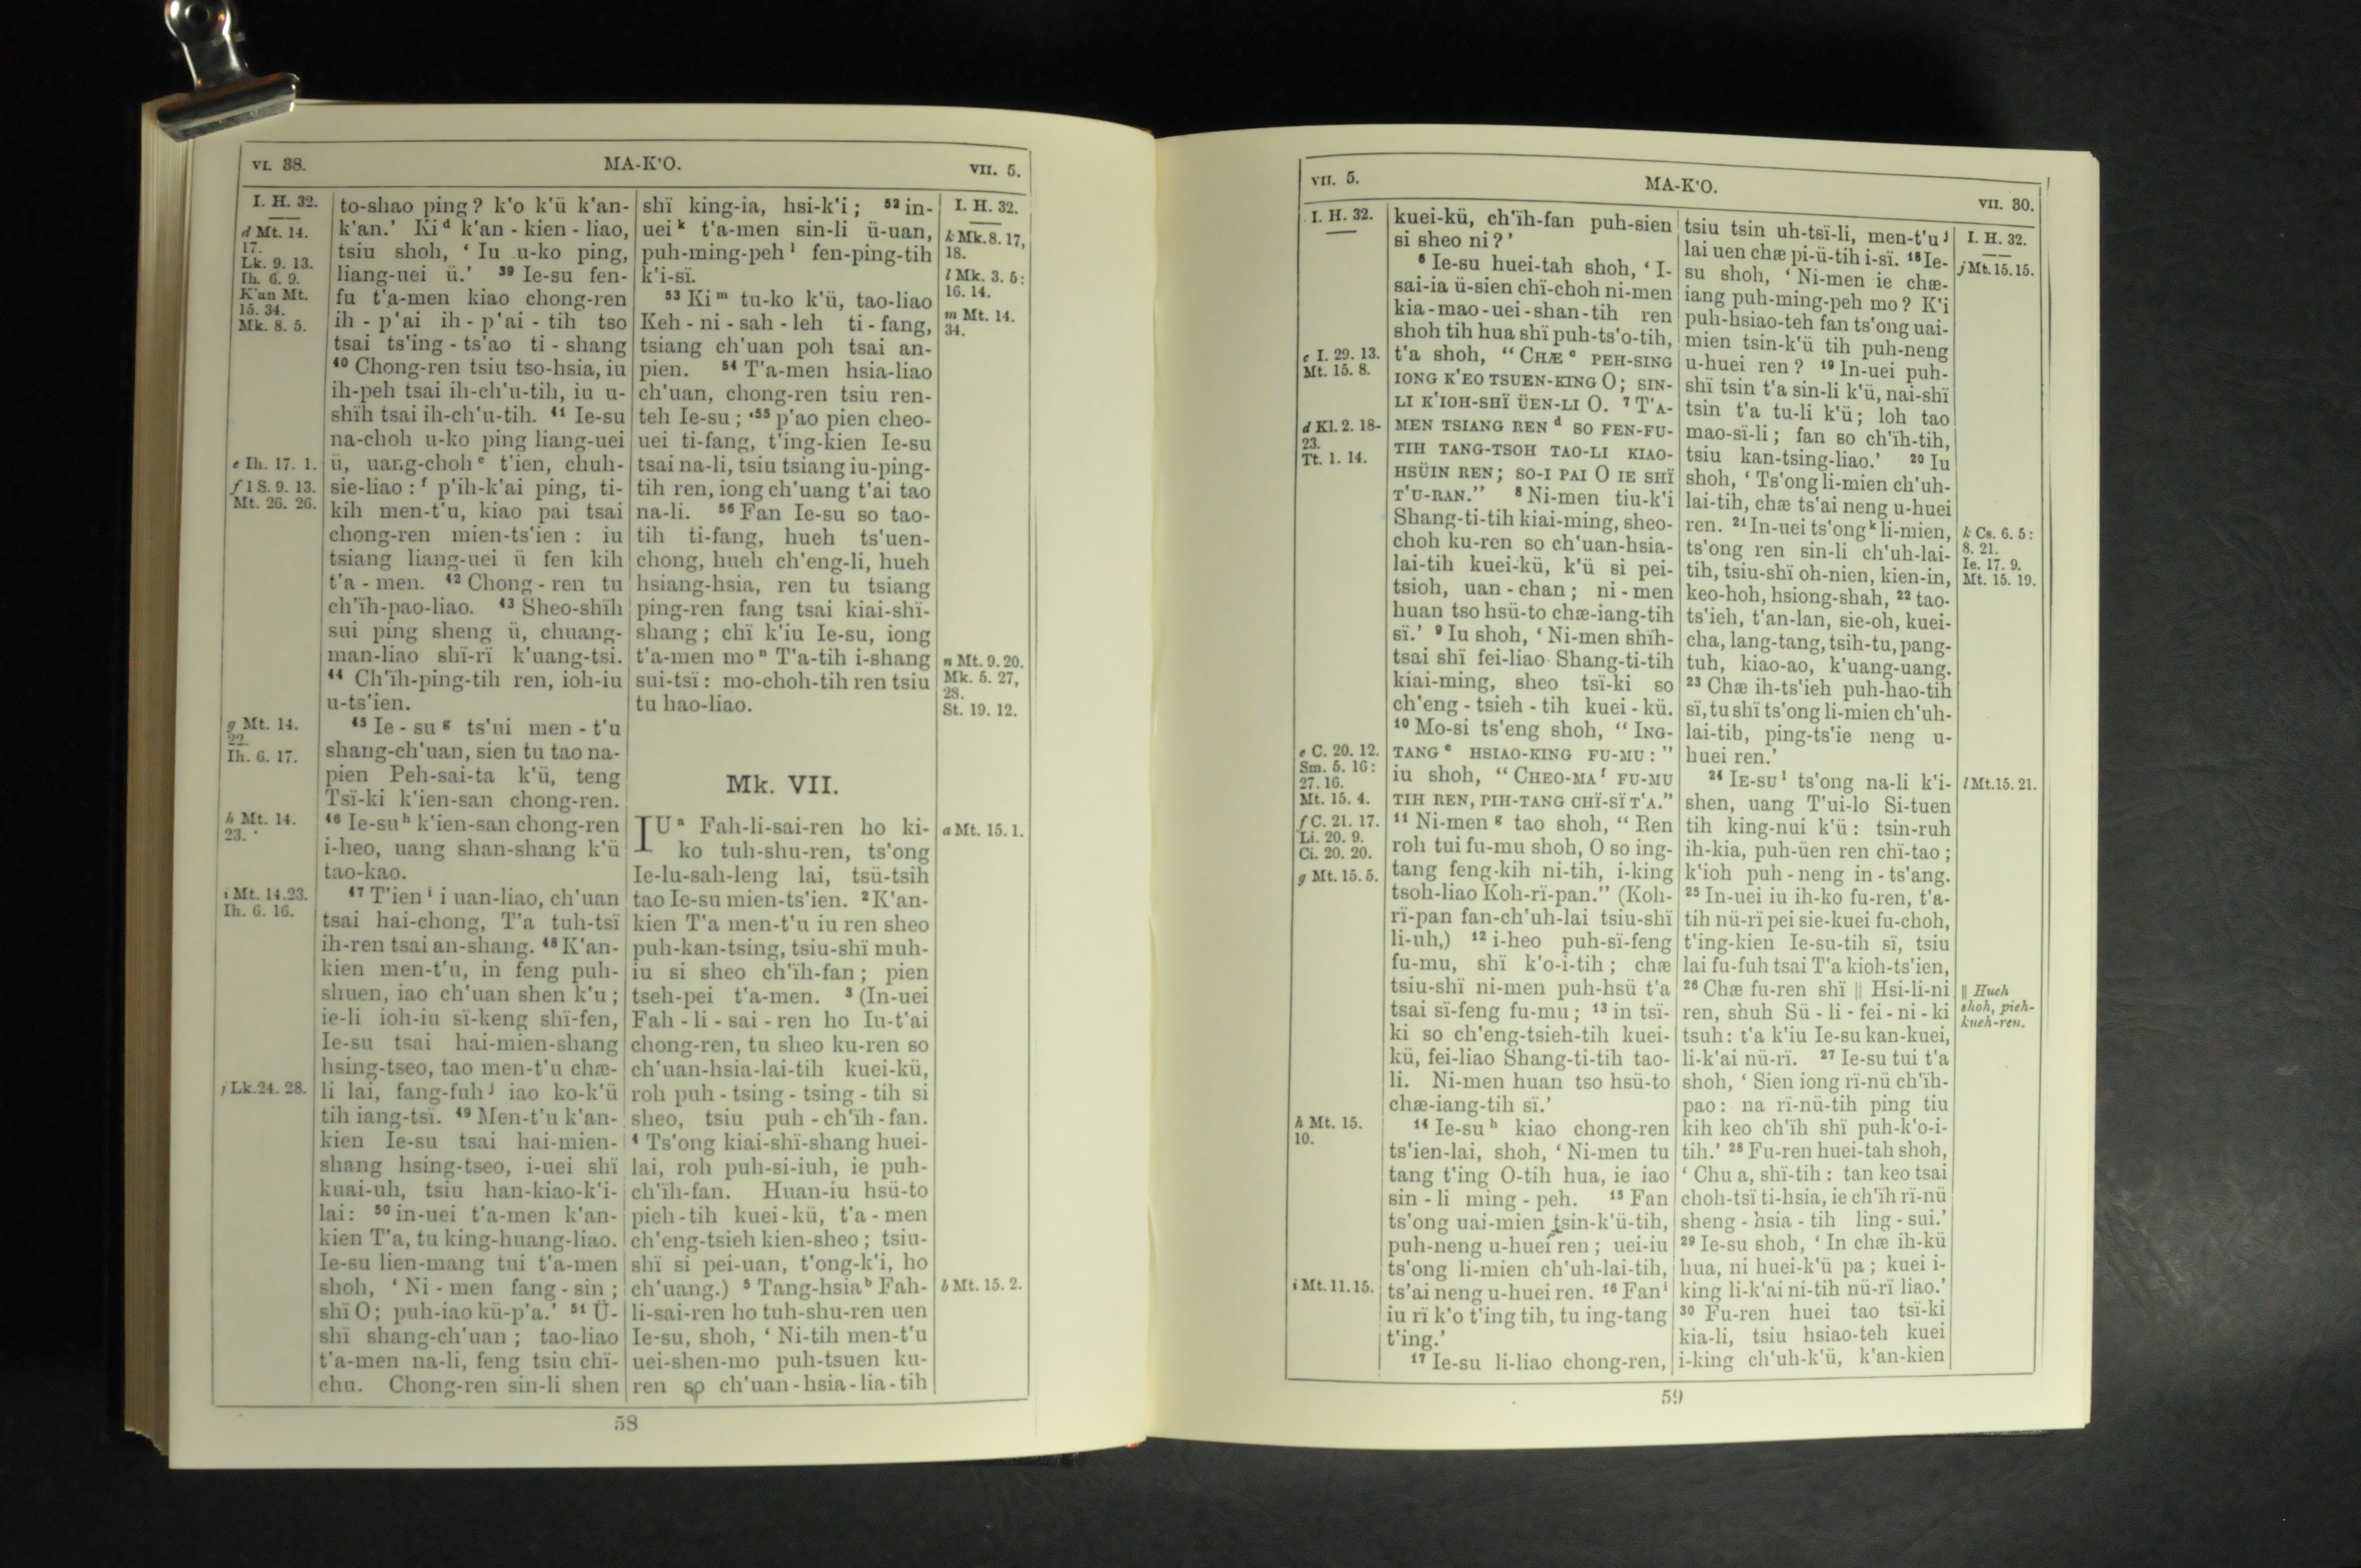 VI. 38. MA-K'O. VII. 5.
I. H. 32.
d Mt. 14.
17.
Lk. 9. 13.
Ih. 6. 9.
K'an Mt.
15. 34.
Mk. 8. 5.
e Ih. 17. 1.
f 1 S. 9. 13.
Mt. 26. 26.
g Mt. 14.
22.
Ih. 6. 17.
h Mt. 14.
23.
i Mt. 14.23.
Ih. 6. 16.
j Lk.24. 28.
to-shao ping? k'o k'ü k'an-
k'an.' Ki d k'an-kien-liao,
tsiu shoh, 'Iu u-ko ping,
liang-uei ü.' 39 Ie-su fen-
fu t'a-men kiao chong-ren
ih-p'ai ih-p'ai-tih tso
tsai ts'ing-ts'ao ti-shang
40 Chong-ren tsiu tso-hsia, iu
ih-peh tsai ih-ch'u-tih, iu u-
shïh tsai ih-ch'u-tih. 41 Ie-su
na-choh u-ko ping liang-uei
ü, uang-choh e t'ien, chuh-
sie-liao: f p'ih-k'ai ping, ti-
kih men-t'u, kiao pai tsai
chong-ren mien-ts'ien: iu
tsiang liang-uei ü fen kih
t'a-men. 42 Chong-ren tu
ch'ïh-pao-liao. 43 Sheo-shïh
sui ping sheng ü, chuang-
man-liao shï-rï k'uang-tsi.
44 Ch'ïh-ping-tih ren, ioh-iu
u-ts'ien.
45 Ie-su g ts'ui men-t'u
shang-ch'uan, sien tu tao na-
pien Peh-sai-ta k'ü, teng
Tsï-ki k'ien-san chong-ren.
46 Ie-su h k'ien-san chong-ren
i-heo, uang shan-shang k'ü
tao-kao.
47 T'ien i i uan-liao, ch'uan
tsai hai-chong, T'a tuh-tsï
ih-ren tsai an-shang. 48 K'an-
kien men-t'u, in feng puh-
shuen, iao ch'uan shen k'u;
ie-li ioh-iu sï-keng shï-fen,
Ie-su tsai hai-mien-shang
hsing-tseo, tao men-t'u chæ-
li lai, fang-fuh j iao ko-k'ü
tih iang-tsï. 49 Men-t'u k'an-
kien Ie-su tsai hai-mien-
shang hsing-tseo, i-uei shï
kuai-uh, tsiu han-kiao-k'i-
lai: 50 in-uei t'a-men k'an-
kien T'a, tu king-huang-liao.
Ie-su lien-mang tui t'a-men
shoh, 'Ni-men fang-sin;
shï O; puh-iao kü-p'a.' 51 Ü-
shï shang-ch'uan; tao-liao
t'a-men na-li, feng tsiu chï-
chu. Chong-ren sin-li shen
shï king-ia, hsi-k'i; 52 in-
uei k t'a-men sin-li ü-uan,
puh-ming-peh l fen-ping-tih
k'i-sï.
53 Ki m tu-ko k'ü, tao-liao
Keh-ni-sah-leh ti-fang,
tsiang ch'uan poh tsai an-
pien. 54 T'a-men hsia-liao
ch'uan, chong-ren tsiu ren-
teh Ie-su; 55 p'ao pien cheo-
uei ti-fang, t'ing-kien Ie-su
tsai na-li, tsiu tsiang iu-ping-
tih ren, iong ch'uang t'ai tao
na-li. 56 Fan Ie-su so tao-
tih ti-fang, hueh ts'uen-
chong, hueh ch'eng-li, hueh
hsiang-hsia, ren tu tsiang
ping-ren fang tsai kiai-shï-
shang; chï k'iu Ie-su, iong
t'a-men mo n T'a-tih i-shang
sui-tsï: mo-choh-tih ren tsiu
tu hao-liao.
Mk. VII.
IU a Fah-li-sai-ren ho ki-
ko tuh-shu-ren, ts'ong
Ie-lu-sah-leng lai, tsü-tsih
tao Ie-su mien-ts'ien. 2 K'an-
kien T'a men-t'u iu ren sheo
puh-kan-tsing, tsiu-shï muh-
iu si sheo ch'ïh-fan; pien
tseh-pei t'a-men. 3 (In-uei
Fah-li-sai-ren ho Iu-t'ai
chong-ren, tu sheo ku-ren so
ch'uan-hsia-lai-tih kuei-kü,
roh puh-tsing-tsing-tih si
sheo, tsiu puh-ch'ïh-fan.
4 Ts'ong kiai-shï-shang huei-
lai, roh puh-si-iuh, ie puh-
ch'ïh-fan. Huan-iu hsü-to
pieh-tih kuei-kü, t'a-men
ch'eng-tsieh kien-sheo; tsiu-
shï si pei-uan, t'ong-k'i, ho
ch'uang.) 5 Tang-hsia b Fah-
li-sai-ren ho tuh-shu-ren uen
Ie-su, shoh, 'Ni-tih men-t'u
uei-shen-mo puh-tsuen ku-
ren so ch'uan-hsia-lia-tih
I. H. 32.
k Mk.8. 17,
18.
l Mk. 3. 5:
16. 14.
m Mt. 14.
34.
n Mt. 9. 20.
Mk. 5. 27,
28.
St. 19. 12.
a Mt. 15. 1.
b Mt. 15. 2.
58
VII. 5. MA-K'O. VII. 30.
I. H. 32.
c I. 29. 13.
Mt. 15. 8.
d Kl. 2. 18-
23.
Tt. 1. 14.
e C. 20. 12.
Sm. 5. 16:
27. 16.
Mt. 15. 4.
f C. 21. 17.
Li. 20. 9.
Ci. 20. 20.
g Mt. 15. 5.
h Mt. 15.
10.
i Mt. 11. 15.
kuei-kü, ch'ïh-fan puh-sien
si sheo ni?'
6 Ie-su huei-tah shoh, 'I-
sai-ia ü-sien chï-choh ni-men
kia-mao-uei-shan-tih ren
shoh tih hua shï puh-ts'o-tih,
t'a shoh, "CHÆ c PEH-SING
IONG K'EO TSUEN-KING O; SIN-
LI K'IOH-SHÏ ÜEN-LI O. 7 T'A-
MEN TSIANG REN d SO FEN-FU-
TIH TANG-TSOH TAO-LI KIAO-
HSÜIN REN; SO-I PAI O IE SHÏ
T'U-RAN." 8 Ni-men tiu-k'i
Shang-ti-tih kiai-ming, sheo-
choh ku-ren so ch'uan-hsia-
lai-tih kuei-kü, k'ü si pei-
tsioh, uan-chan; ni-men
huan tso hsü-to chæ-iang-tih
sï.' 9 Iu shoh, 'Ni-men shïh-
tsai shï fei-liao Shang-ti-tih
kiai-ming, sheo tsï-ki so
ch'eng-tsieh-tih kuei-kü.
10 Mo-si ts'eng shoh, "ING-
TANG e HSIAO-KING FU-MU:"
iu shoh, "CHEO-MA f FU-MU
TIH REN, PIH-TANG CHÏ-SÏ T'A."
11 Ni-men g tao shoh, "Ren
roh tui fu-mu shoh, O so ing-
tang feng-kih ni-tih, i-king
tsoh-liao Koh-rï-pan." (Koh-
rï-pan fan-ch'uh-lai tsiu-shï
li-uh,) 12 i-heo puh-sï-feng
fu-mu, shï k'o-i-tih; chæ
tsiu-shï ni-men puh-hsü t'a
tsai sï-feng fu-mu; 13 in tsï-
ki so ch'eng-tsieh-tih kuei-
kü, fei-liao Shang-ti-tih tao-
li. Ni-men huan tso hsü-to
chæ-iang-tih sï.'
14 Ie-su h kiao chong-ren
ts'ien-lai, shoh, 'Ni-men tu
tang t'ing O-tih hua, ie iao
sin-li ming-peh. 15 Fan
ts'ong uai-mien tsin-k'ü-tih,
puh-neng u-huei ren; uei-iu
ts'ong li-mien ch'uh-lai-tih,
ts'ai neng u-huei ren. 16 Fan i
iu rï k'o t'ing tih, tu ing-tang
t'ing.'
17 Ie-su li-liao chong-ren,
tsiu tsin uh-tsï-li, men-t'u j
lai uen chæ pi-ü-tih i-sï. 18 Ie-
su shoh, 'Ni-men ie chæ-
iang puh-ming-peh mo? K'i
puh-hsiao-teh fan ts'ong uai-
mien tsin-k'ü tih puh-neng
u-huei ren? 19 In-uei puh-
shï tsin t'a sin-li k'ü, nai-shï
tsin t'a tu-li k'ü; loh tao
mao-sï-li; fan so ch'ïh-tih,
tsiu kan-tsing-liao.' 20 Iu
shoh, 'Ts'ong li-mien ch'uh-
lai-tih, chæ ts'ai neng u-huei
ren. 21 In-uei ts'ong k li-mien,
ts'ong ren sin-li ch'uh-lai-
tih, tsiu-shï oh-nien, kien-in,
keo-hoh, hsiong-shah, 22 tao-
ts'ieh, t'an-lan, sie-oh, kuei-
cha, lang-tang, tsih-tu, pang-
tuh, kiao-ao, k'uang-uang.
23 Chæ ih-ts'ieh puh-hao-tih
sï, tu shï ts'ong li-mien ch'uh-
lai-tih, ping-ts'ie neng u-
huei ren.'
24 IE-SU l ts'ong na-li k'i-
shen, uang T'ui-lo Si-tuen
tih king-nui k'ü: tsin-ruh
ih-kia, puh-üen ren chï-tao;
k'ioh puh-neng in-ts'ang.
25 In-uei iu ih-ko fu-ren, t'a-
tih nü-rï pei sie-kuei fu-choh,
t'ing-kien Ie-su-tih sï, tsiu
lai fu-fuh tsai T'a kioh-ts'ien,
26 Chæ fu-ren shï || Hsi-li-ni
ren, shuh Sü-li-fei-ni-ki
tsuh: t'a k'iu Ie-su kan-kuei,
li-k'ai nü-rï. 27 Ie-su tui t'a
shoh, 'Sien iong rï-nü ch'ïh-
pao: na rï-nü-tih ping tiu
kih keo ch'ïh shï puh-k'o-i-
tih.' 28 Fu-ren huei-tah shoh,
'Chu a, shï-tih: tan keo tsai
choh-tsï ti-hsia, ie ch'ïh rï-nü
sheng-hsia-tih ling-sui.'
29 Ie-su shoh, 'In chæ ih-kü
hua, ni huei-k'ü pa; kuei i-
king li-k'ai ni-tih nü-rï liao.'
30 Fu-ren huei tao tsï-ki
kia-li, tsiu hsiao-teh kuei
i-king ch'uh-k'ü, k'an-kien
I. H. 32.
j Mt. 15. 15.
k Cs. 6. 5:
8. 21.
Ie. 17. 9.
Mt. 15. 19.
l Mt. 15. 21.
|| Hueh
shoh, pieh-
kueh-ren.
59